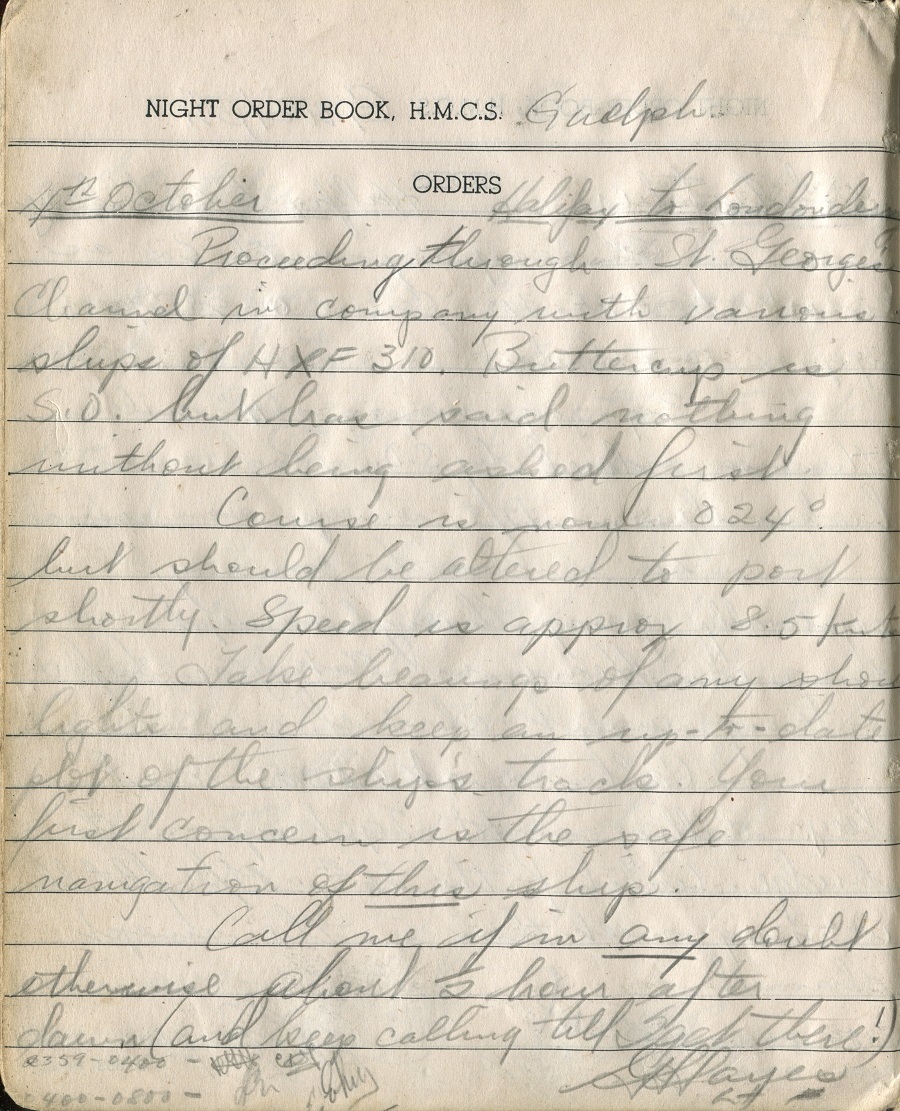 NIGHT ORDER BOOK, H.M.C.S. Guelph
ORDERS
4th October Halifax to Londonder
Proceeding through St. George's
Channel in company with various
ships of HXF 310. Buttercup is
S.O. but has said nothing
without being asked first.
Course is now 024°.
but should be altered to port
shortly. Speed is approx 8.5 knts
Take bearings of any shore
lights and keep an up-to-date
plot of the ship's track. Your
first concern is the safe
navigation of this ship.
Call me if in any doubt
otherwise about ½ hour after
dawn (and keep calling till I get there!)
2359-0400 -
GHHayes
0400-0800 - Lt